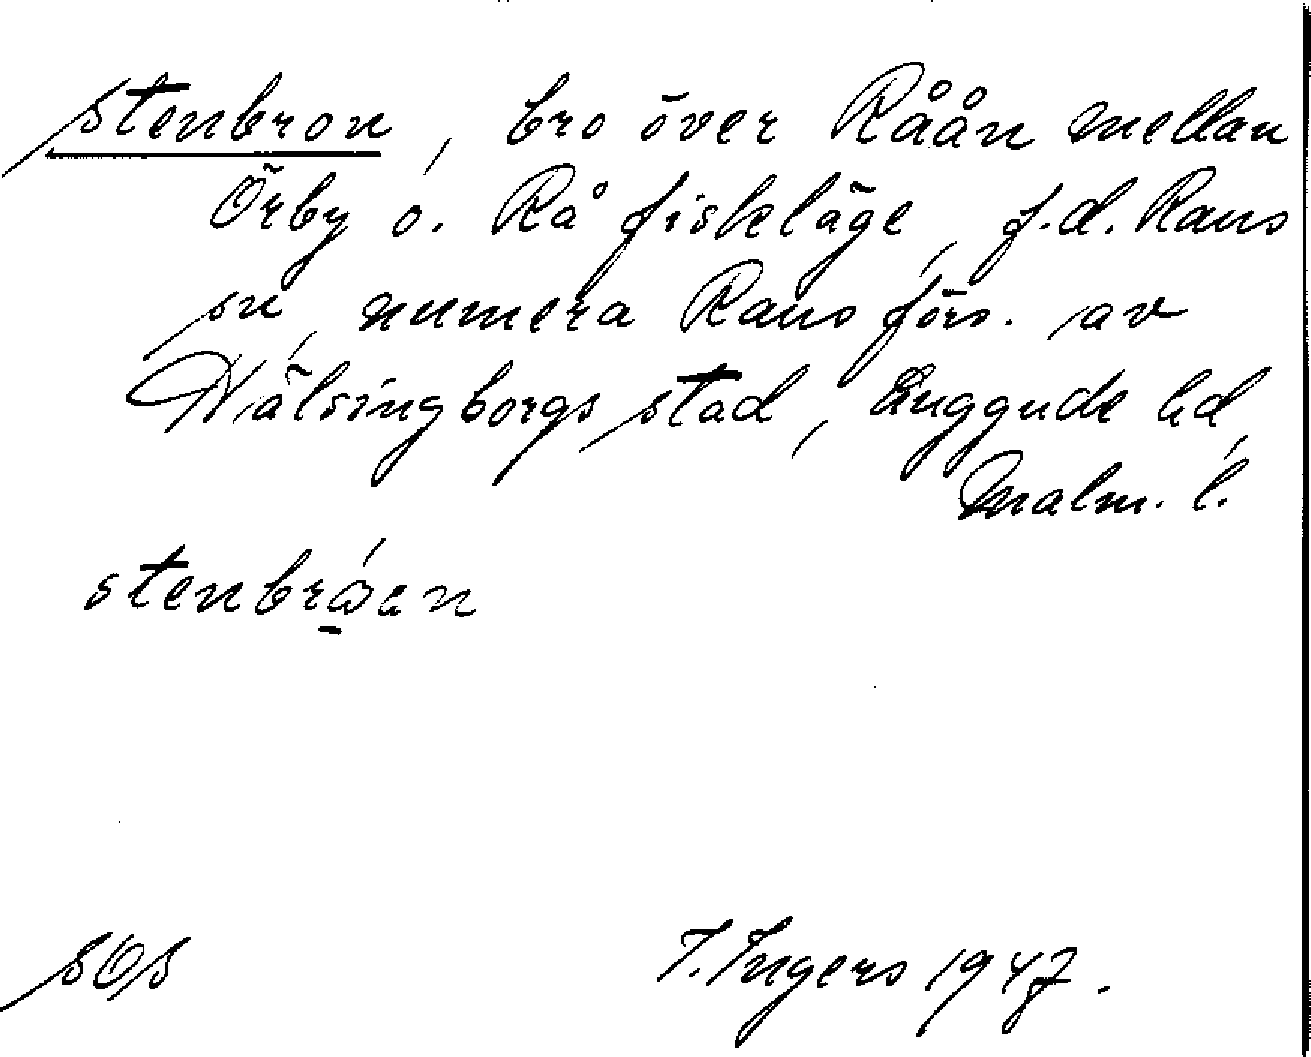 Stenbron, bro över Råån mellan
Örby o. Rå fiskläge, f.d. Raus
sn, numera Raus förs. av
Hälsingborgs stad, Luggude hd,
Malm. l.
stenbråen
SOS
I. Ingers 1947.